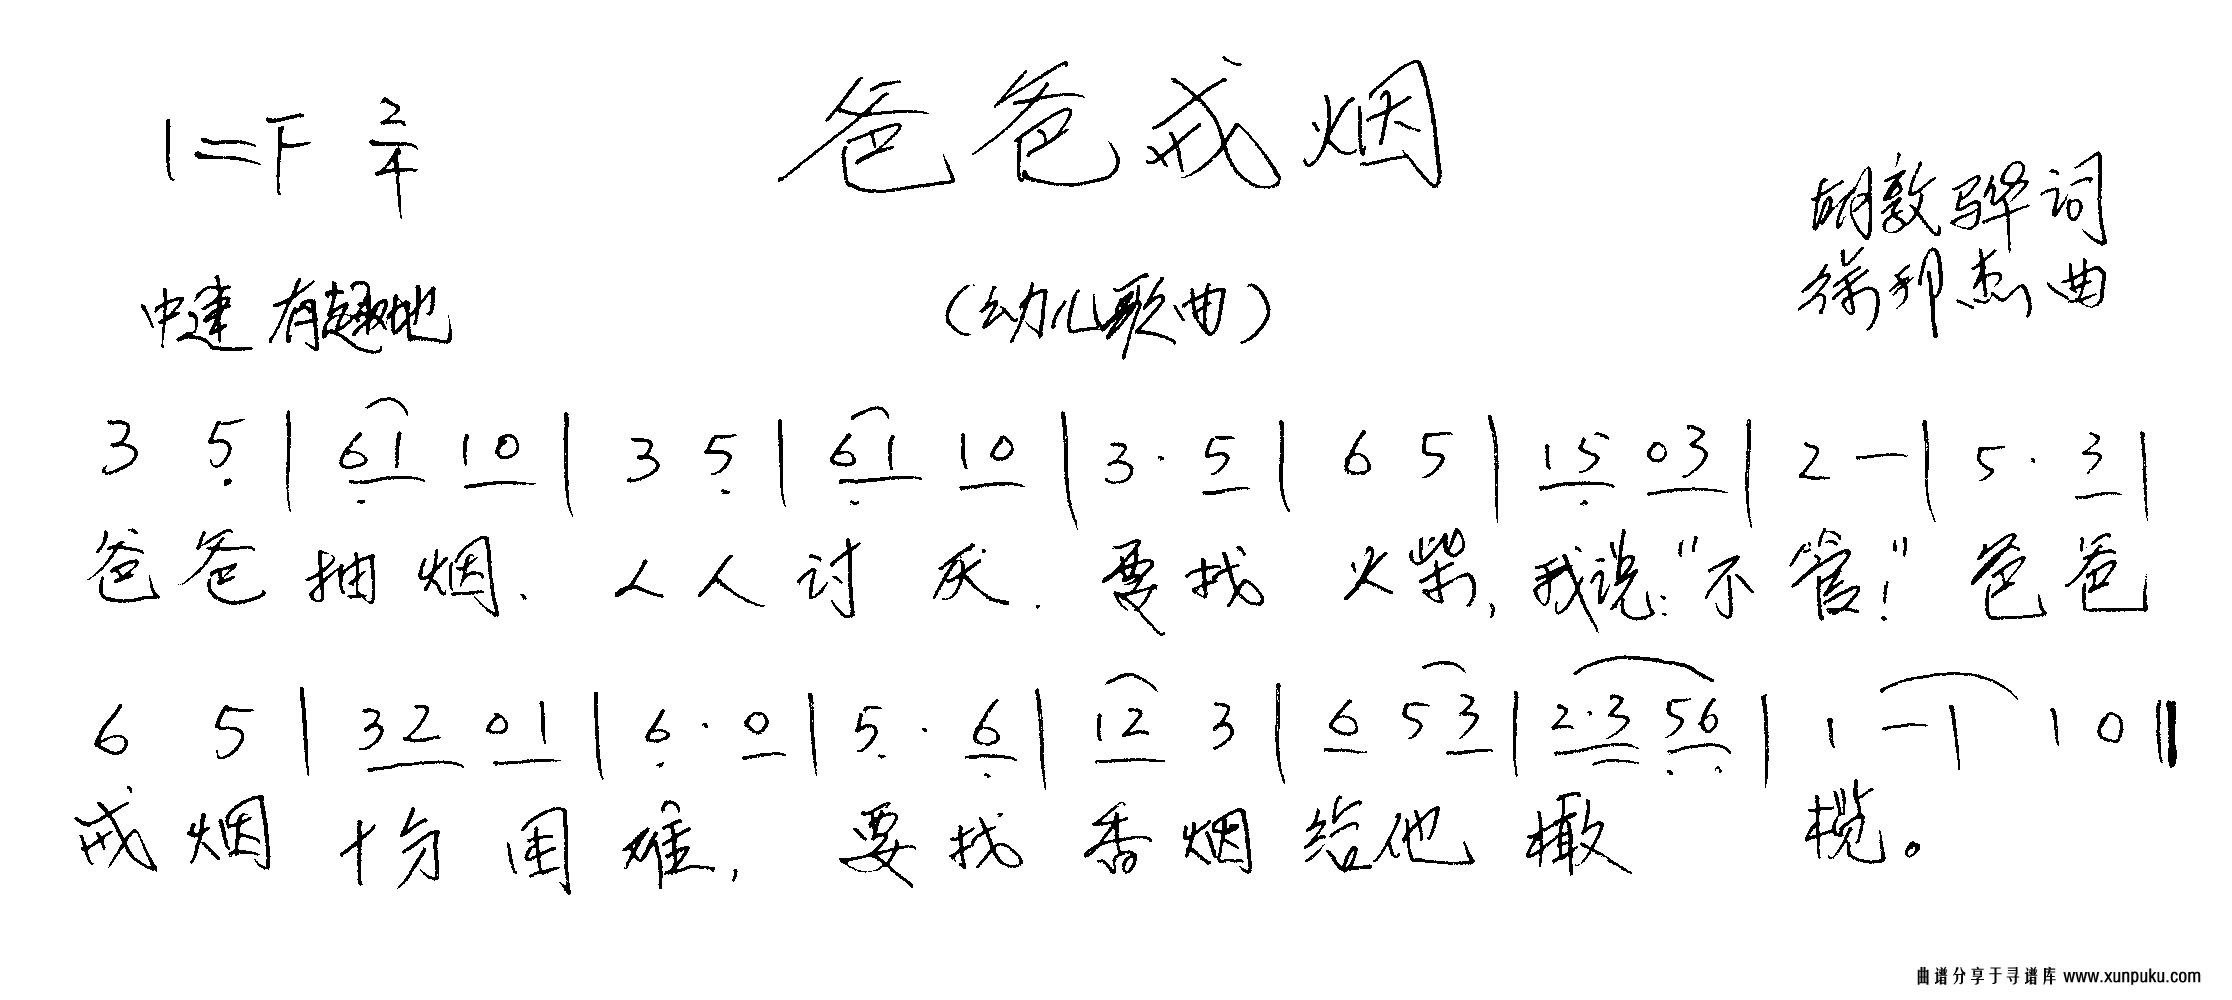 爸爸戒烟
1=F 2/4
胡敦骅词
中速 有趣地
(幼儿歌曲)
徐邦杰曲
3 5 | 61 10 | 3 5 | 61 10 | 3· 5 | 6 5 | 15 03 | 2 — | 5· 3 |
爸爸抽烟、人人讨厌.要找火柴,我说:"不管!"爸爸
6 5 | 32 01 | 6· 0 | 5· 6 | 12 3 | 6 5 3 | 2·3 56 | 1 — | 1 0 ‖
戒烟十分困难,要找香烟给他橄榄。
曲谱分享于寻谱库 www.xunpuku.com